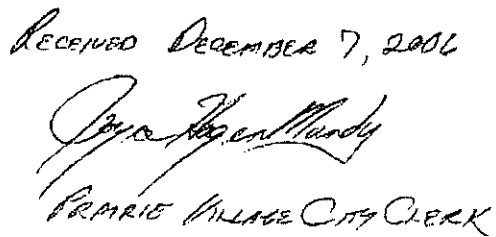 RECEIVED DECEMBER 7, 2006
Joyce Hagen Mundy
PRAIRIE VILLAGE CITY CLERK